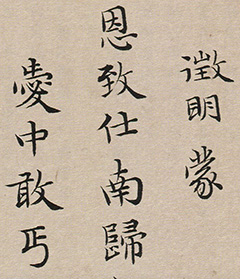 徵明蒙
恩致仕南歸
愛中敢丐